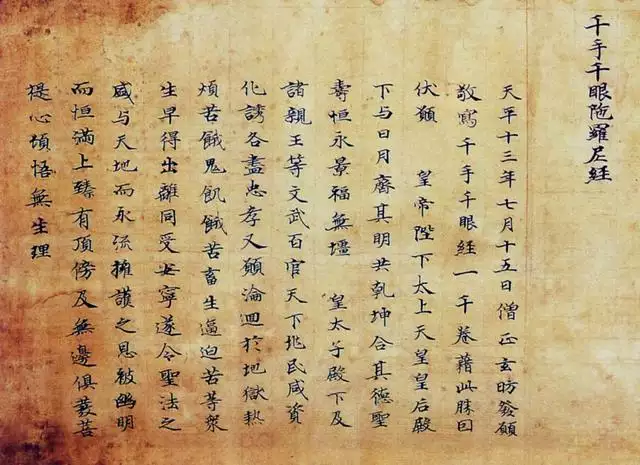 千手千眼陁羅尼経
天平十三年七月十五日僧正玄昉發願
敬寫千手千眼經一千巻藉此勝因
伏願 皇帝陛下太上天皇皇后殿
下与日月齊其明共乾坤合其德聖
壽恒永景福無壃 皇太子殿下及
諸親王等文武百官天下兆民咸資
化誘各盡忠孝又願淪迴於地獄熱
煩苦餓鬼飢餓苦畜生逼迫苦等衆
生早得出離同受安寧遂令聖法之
威与天地而永流擁護之恩被幽明
而恒満上臻有頂傍及無邊俱發菩
提心頓悟無生理